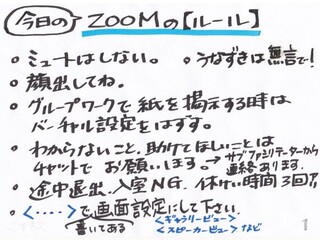 今日の ZOOMの【ルール】
・ミュートはしない。 ・うなずきは無言で!
・顔出してね。
・グループワークで紙を掲示する時は
バーチャル設定をはずす。
・わからないこと、助けてほしいことは
チャットでお願いします。→サブファシリテーターから
連絡あります。
・途中退出、入室NG. 休けい時間3回?
・<・・・・>で画面設定にして下さい。
書いてある
<ギャラリービュー>
<スピーカービュー>など
1